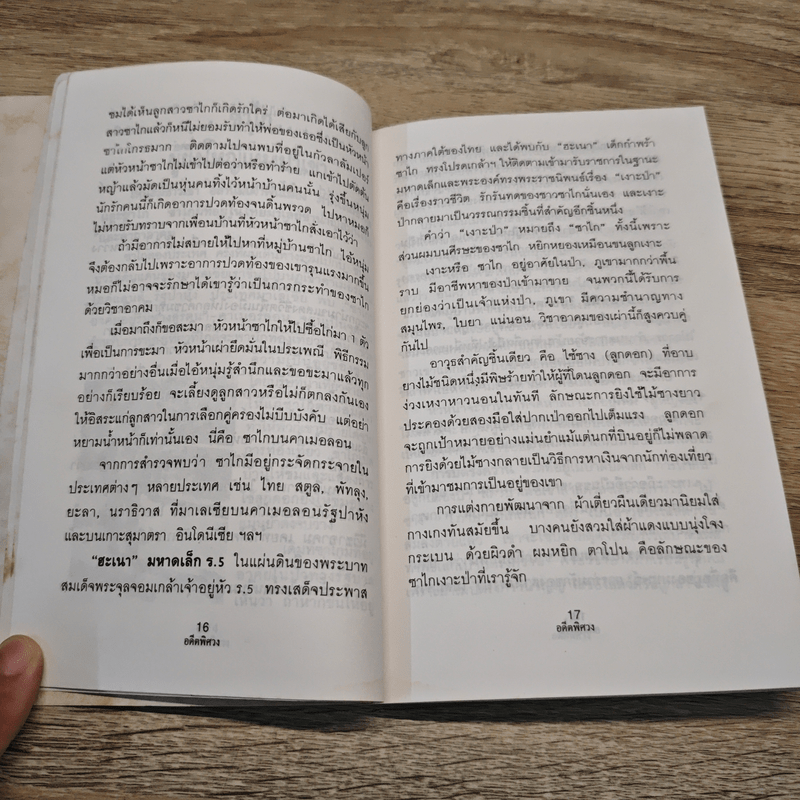 ชมได้เห็นลูกสาวซาไกก็เกิดรักใคร่ ต่อมาเกิดได้เสียกับลูก
สาวซาไกแล้วก็หนีไม่ยอมรับทำให้พ่อของเธอซึ่งเป็นหัวหน้า
ซาไกโกรธมาก ติดตามไปจนพบที่อยู่ในกัวลาลัมเปอร์
แต่หัวหน้าซาไกไม่เข้าไปต่อว่าหรือทำร้าย แกเข้าไปตัดต้น
หญ้าแล้วมัดเป็นหุ่นคนทิ้งไว้หน้าบ้านคนนั้น รุ่งขึ้นหนุ่ม
นักรักคนนี้ก็เกิดอาการปวดท้องจนดิ้นพรวด ไปหาหมอก็
ไม่หายรับทราบจากเพื่อนบ้านที่หัวหน้าซาไกสั่งเอาไว้ว่า
ถ้ามีอาการไม่สบายให้ไปหาที่หมู่บ้านซาไก ไอ้หนุ่ม
จึงต้องกลับไปเพราะอาการปวดท้องของเขารุนแรงมากขึ้น
หมอก็ไม่อาจจะรักษาได้เขารู้ว่าเป็นการกระทำของซาไก
ด้วยวิชาอาคม
เมื่อมาถึงก็ขอสะมา หัวหน้าซาไกให้ไปซื้อไก่มา 1 ตัว
เพื่อเป็นการขะมา หัวหน้าเผ่ายึดมั่นในประเพณี พิธีกรรม
มากกว่าอย่างอื่นเมื่อไอ้หนุ่มรู้สำนึกและขอขะมาแล้วทุก
อย่างก็เรียบร้อย จะเลี้ยงดูลูกสาวหรือไม่ก็ตกลงกันเอง
ให้อิสระแก่ลูกสาวในการเลือกคู่ครองไม่บีบบังคับ แต่อย่า
หยามน้ำหน้าก็เท่านั้นเอง นี่คือ ซาไกบนคาเมอลอน
จากการสำรวจพบว่า ซาไกมีอยู่กระจัดกระจายใน
ประเทศต่างๆ หลายประเทศ เช่น ไทย สตูล, พัทลุง,
ยะลา, นราธิวาส ที่มาเลเซียบนคาเมอลอนรัฐปาหัง
และบนเกาะสุมาตรา อินโดนีเซีย ฯลฯ
“ฮะเนา” มหาดเล็ก ร.5 ในแผ่นดินของพระบาท
สมเด็จพระจุลจอมเกล้าเจ้าอยู่หัว ร.5 ทรงเสด็จประพาส
16
อดีตพิศวง
ทางภาคใต้ของไทย และได้พบกับ “ฮะเนา” เด็กกำพร้า
ซาไก ทรงโปรดเกล้าฯ ให้ติดตามเข้ามารับราชการในฐานะ
มหาดเล็กและพระองค์ทรงพระราชนิพนธ์เรื่อง “เงาะป่า”
คือเรื่องราวชีวิต รักรันทดของชาวซาไกนั่นเอง และเงาะ
ป่ากลายมาเป็นวรรณกรรมชิ้นที่สำคัญอีกชิ้นหนึ่ง
คำว่า “เงาะป่า” หมายถึง “ซาไก” ทั้งนี้เพราะ
ส่วนผมบนศีรษะของซาไก หยิกหยองเหมือนขนลูกเงาะ
เงาะหรือ ซาไก อยู่อาศัยในป่า, ภูเขามากกว่าพื้น
ราบ มีอาชีพหาของป่าเข้ามาขาย จนพวกนี้ได้รับการ
ยกย่องว่าเป็นเจ้าแห่งป่า, ภูเขา มีความชำนาญทาง
สมุนไพร, ใบยา แน่นอน วิชาอาคมของเผ่านี้ก็สูงควบคู่
กันไป
อาวุธสำคัญชิ้นเดียว คือ ไซ้ซาง (ลูกดอก) ที่อาบ
ยางไม้ชนิดหนึ่งมีพิษร้ายทำให้ผู้ที่โดนลูกดอก จะมีอาการ
ง่วงเหงาหาวนอนในทันที ลักษณะการยิงใช้ไม้ซางยาว
ประคองด้วยสองมือใส่ปากเป่าออกไปเต็มแรง ลูกดอก
จะถูกเป้าหมายอย่างแม่นยำแม้แต่นกที่บินอยู่ก็ไม่พลาด
การยิงด้วยไม้ซางกลายเป็นวิธีการหาเงินจากนักท่องเที่ยว
ที่เข้ามาชมการเป็นอยู่ของเขา
การแต่งกายพัฒนาจาก ผ้าเตี่ยวผืนเดียวมานิยมใส่
กางเกงทันสมัยขึ้น บางคนยังสวมใส่ผ้าแดงแบบนุ่งโจง
กระเบน ด้วยผิวดำ ผมหยิก ตาโปน คือลักษณะของ
ซาไกเงาะป่าที่เรารู้จัก
17
อดีตพิศวง